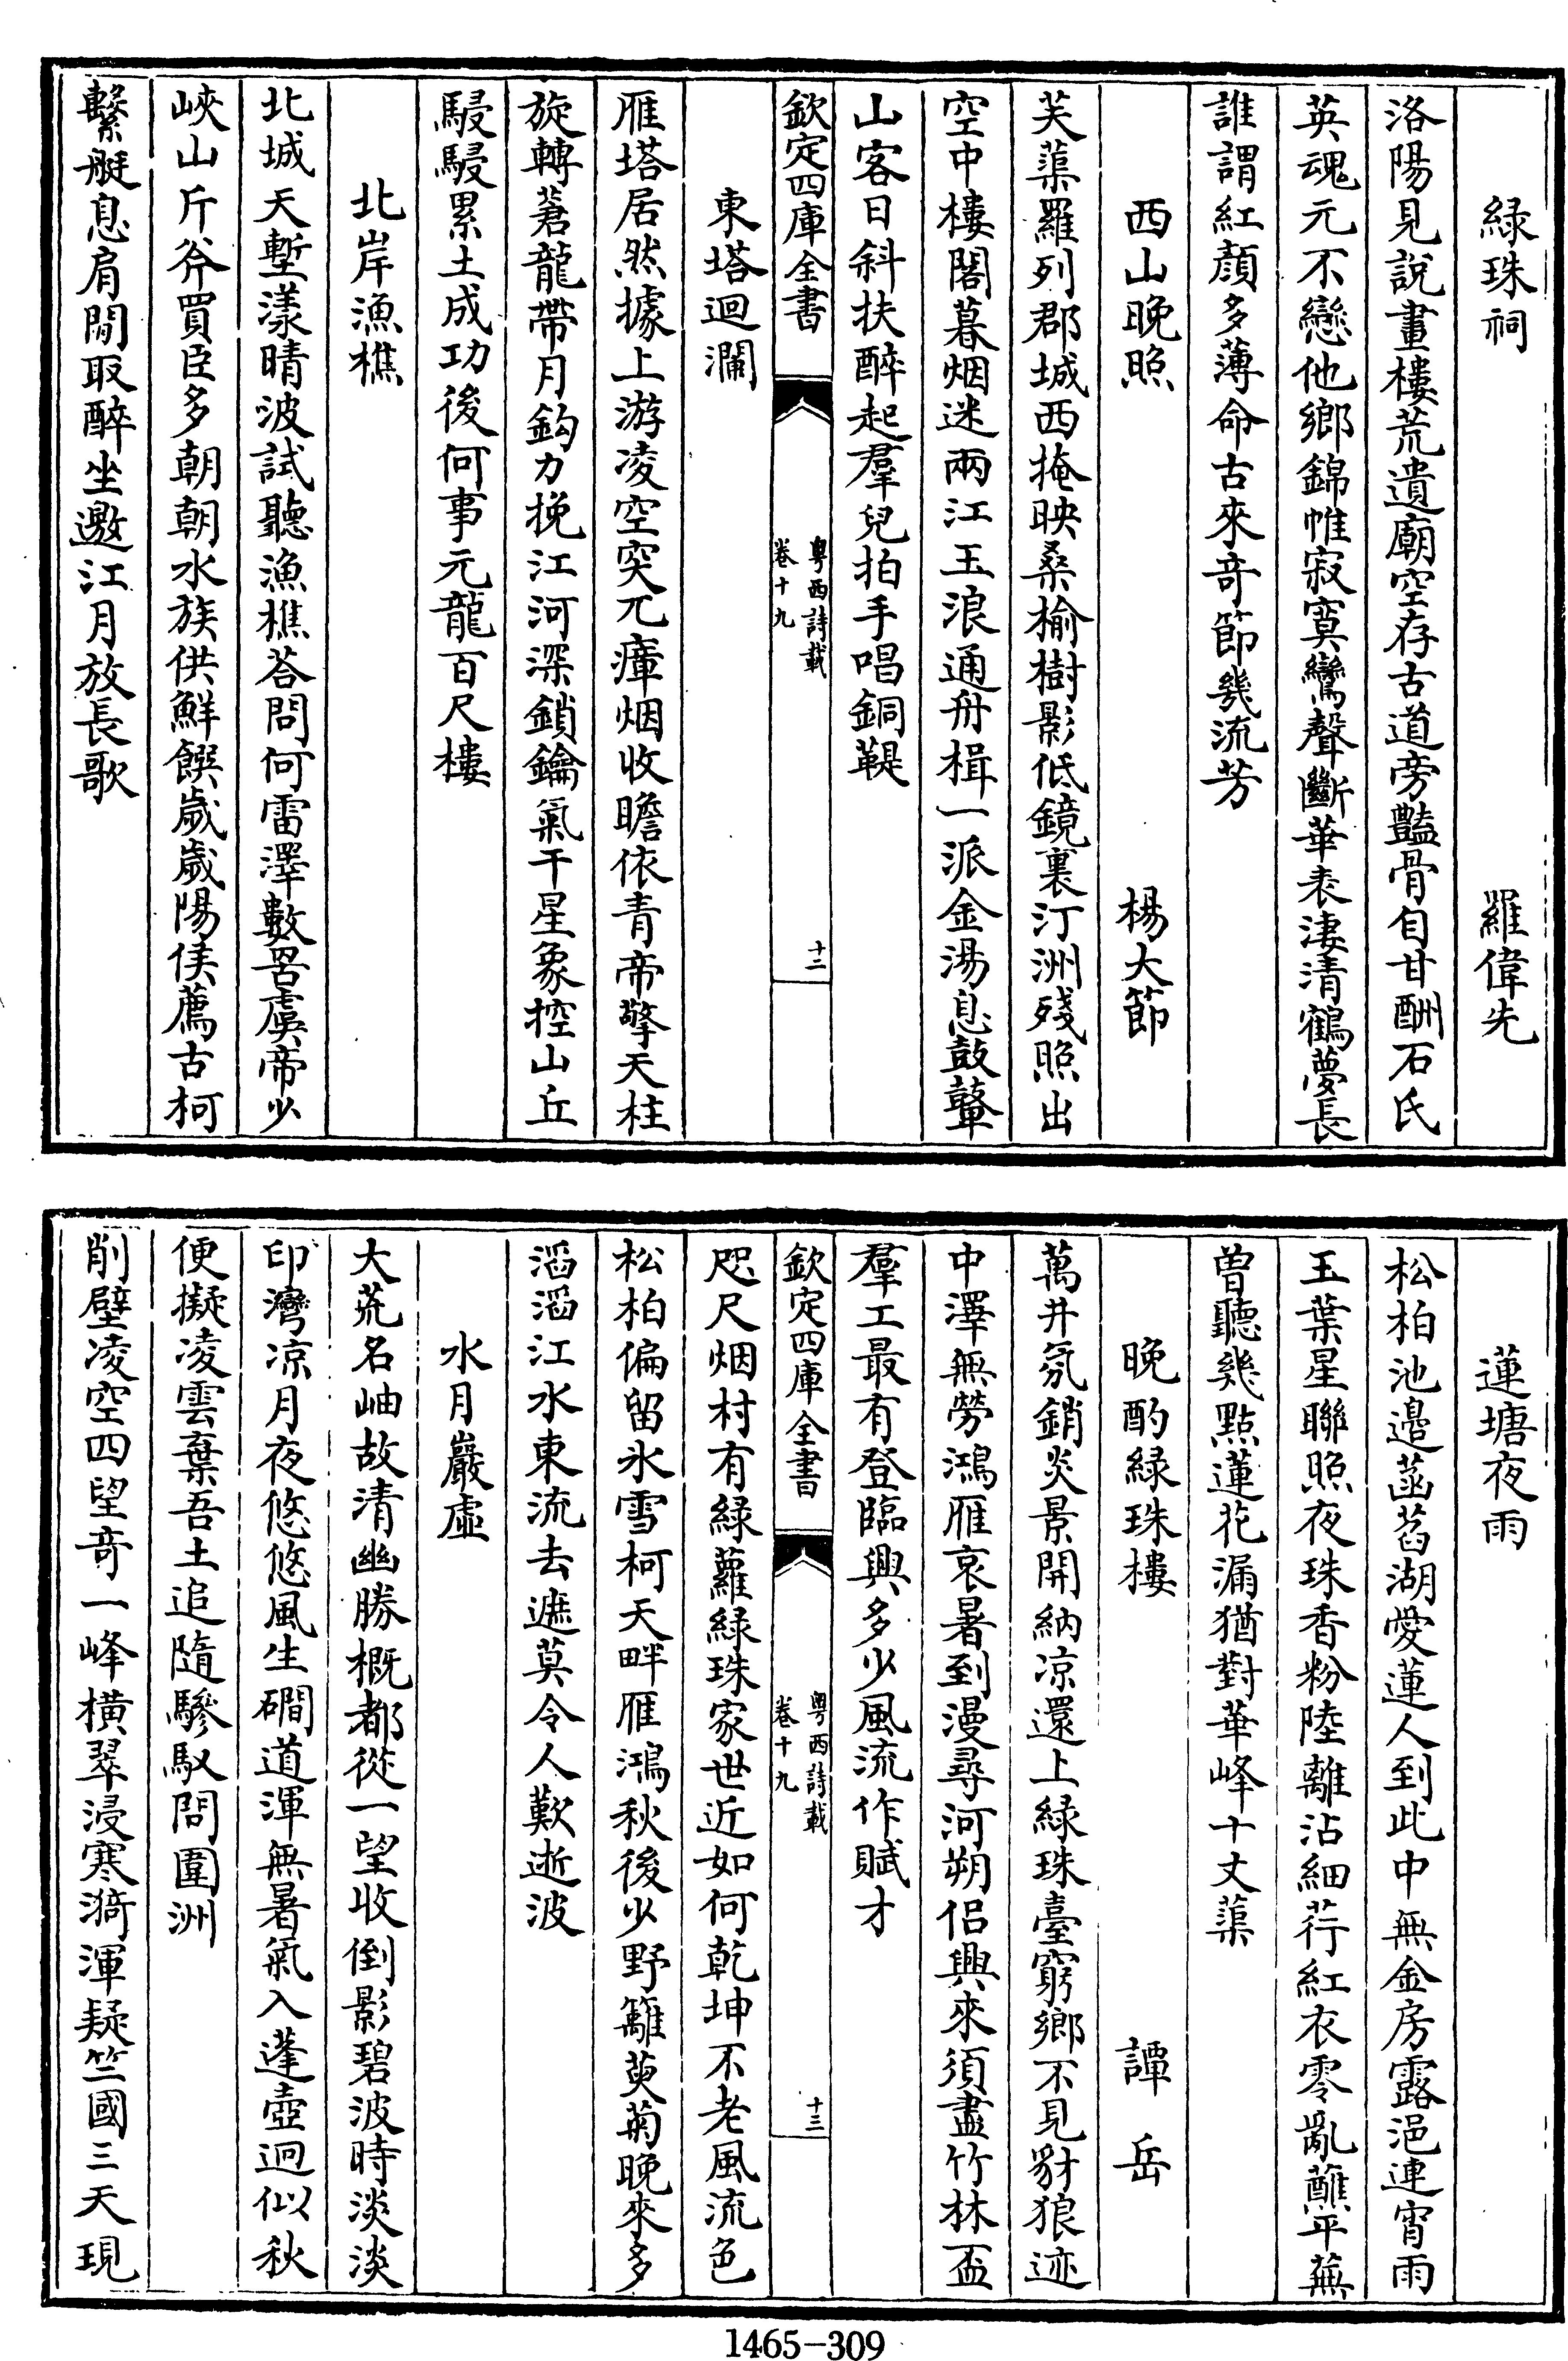 綠珠祠 羅偉先
洛陽見說畫樓荒遺廟空存古道旁豔骨自甘酬石氏
英魂元不戀他鄉錦帷寂寞鸞聲斷華表淒清鶴夢長
誰謂紅顏多薄命古來奇節幾流芳
西山晚照 楊大節
芙蕖羅列郡城西掩映桑榆樹影低鏡裏汀洲殘照出
空中樓閣暮烟迷兩江玉浪通舟楫一派金湯息鼓鼙
山客日斜扶醉起羣兒拍手唱銅鞮
欽定四庫全書 粵西詩載 卷十九 十二
東塔迴瀾
雁塔居然據上游凌空突兀瘴烟收瞻依青帝擎天柱
旋轉蒼龍帶月鈎力挽江河深鎖鑰氣干星象控山丘
駸駸累土成功後何事元龍百尺樓
北岸漁樵
北城天塹漾晴波試聽漁樵荅問何雷澤數罟虞帝少
峽山斤斧買臣多朝朝水族供鮮饌歲歲陽侯薦古柯
繫艇息肩閒取醉坐邀江月放長歌
蓮塘夜雨
松柏池邉菡萏湖愛蓮人到此中無金房露浥連宵雨
玉葉星聯照夜珠香粉陸離沾細荇紅衣零亂蘸平蕪
曽聽幾點蓮花漏猶對華峰十丈蕖
晚酌綠珠樓 譚岳
萬井氛銷炎景開納凉還上綠珠臺窮鄉不見豺狼迹
中澤無勞鴻雁哀暑到漫尋河朔侣興來須盡竹林盃
羣工最有登臨興多少風流作賦才
欽定四庫全書 粵西詩載 卷十九 十三
咫尺烟村有綠蘿綠珠家世近如何乾坤不老風流色
松柏偏留氷雪柯天畔雁鴻秋後少野籬萸菊晚來多
滔滔江水東流去遮莫令人歎逝波
水月巖虛
大荒名岫故清幽勝概都從一望收倒影碧波時淡淡
印灣凉月夜悠悠風生磵道渾無暑氣入蓬壺迥似秋
便擬凌雲棄吾土追隨驂馭問圍洲
削壁凌空四望奇一峰横翠浸寒漪渾疑竺國三天現
1465-309